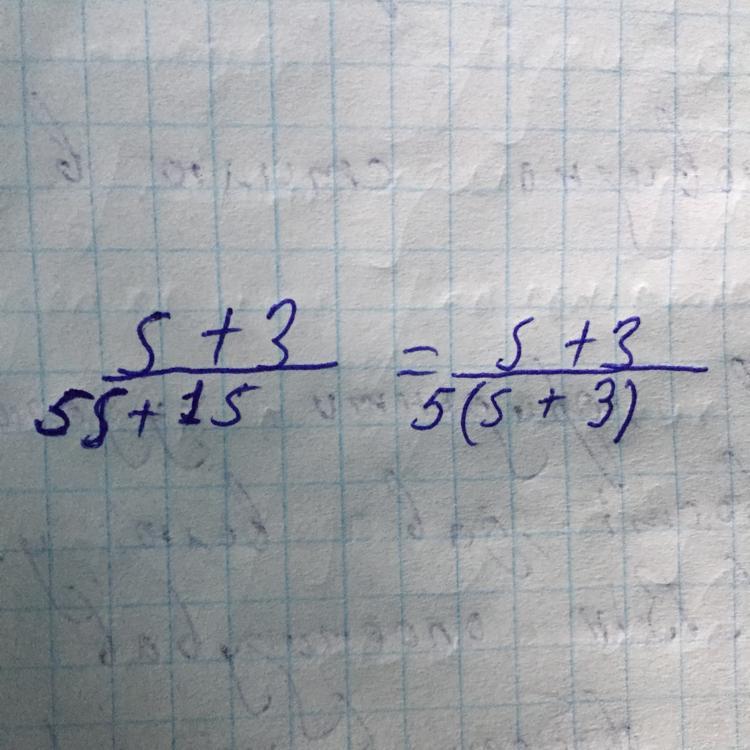 s + 3 / 5s + 15 = s + 3 / 5(s + 3)